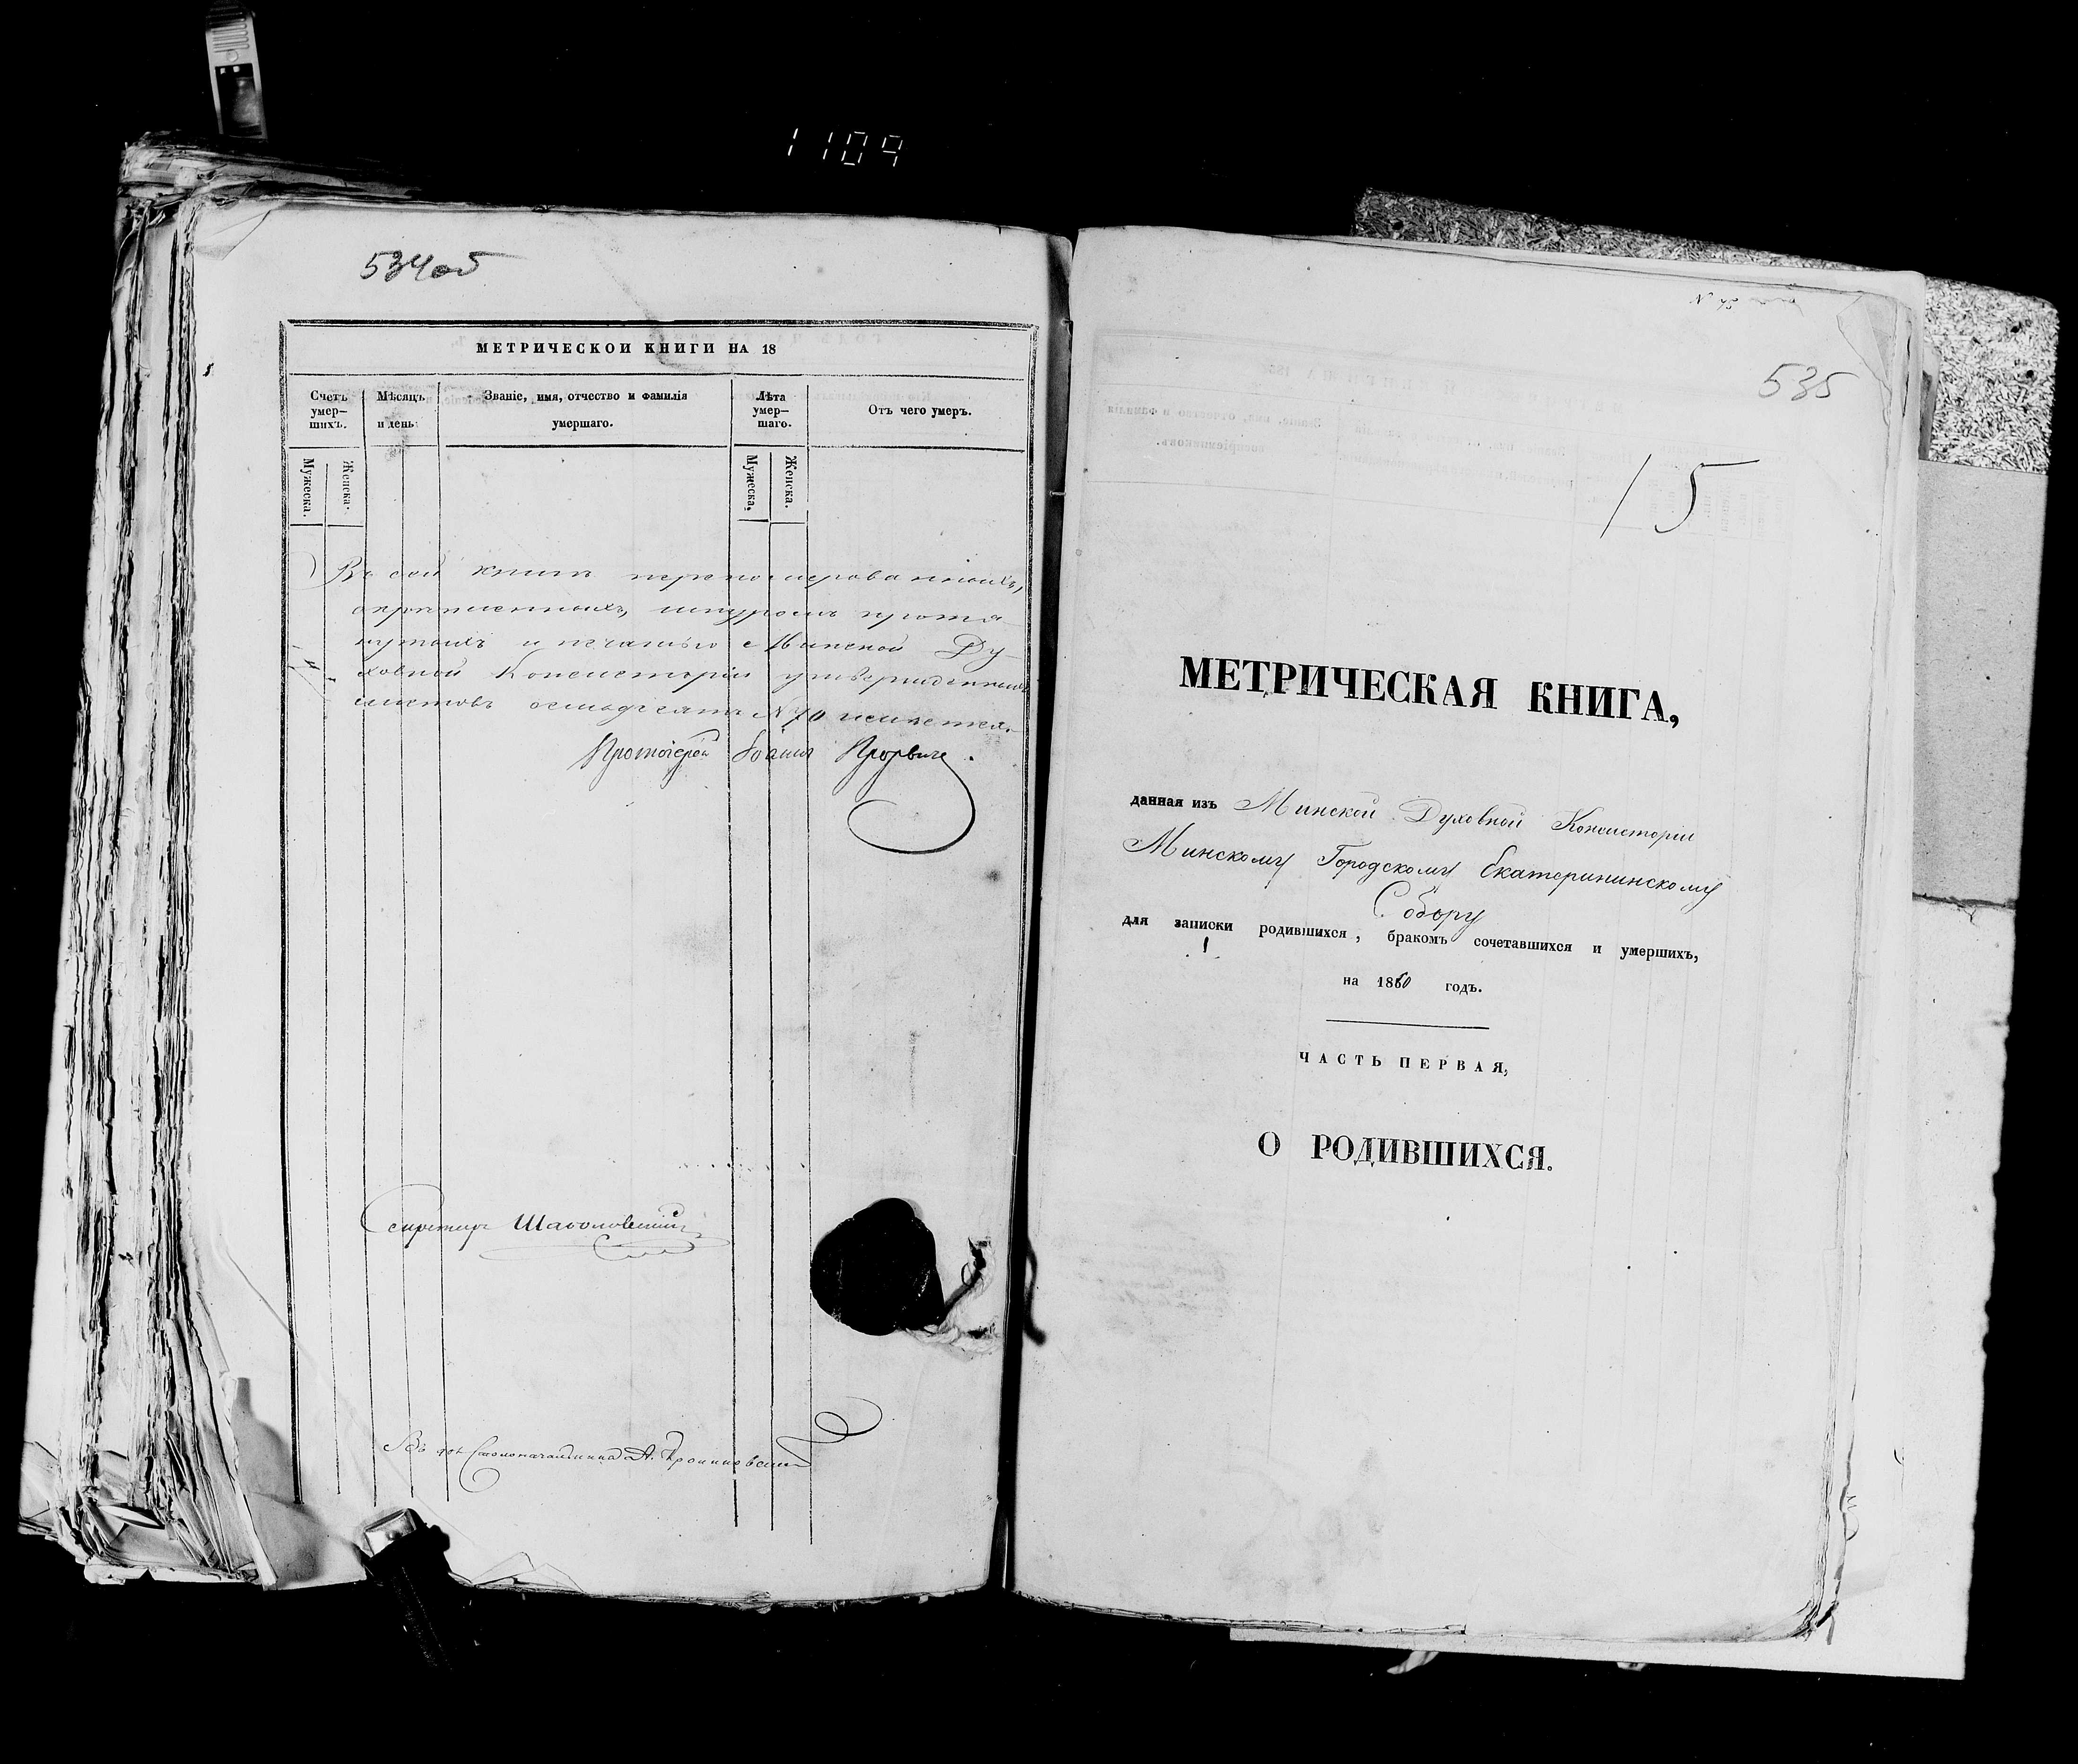 1109
534об
МЕТРИЧЕСКОЙ КНИГИ НА 18
Счетъ умер-шихъ.
Мѣсяцъ и день.
Званіе, имя, отчество и фамилія умершаго.
Лѣта умер-шаго.
Отъ чего умеръ.
Мужеска.
Женска.
Мужеска.
Женска.
Въ сей книгѣ перенумерованныхъ,
скрѣпленныхъ, шнуромъ протя-
нутыхъ и печатью Минской Ду-
ховной Консисторіи утвержденныхъ
листовъ осмьдесятъ
Протоіерей
Секретарь
Столоначальника А.
535
15
МЕТРИЧЕСКАЯ КНИГА,
данная изъ Минской Духовной Консисторіи
Минскому Городскому Екатерининскому
Собору
для записки родившихся, бракомъ сочетавшихся и умершихъ,
на 1860 годъ.
ЧАСТЬ ПЕРВАЯ,
О РОДИВШИХСЯ.